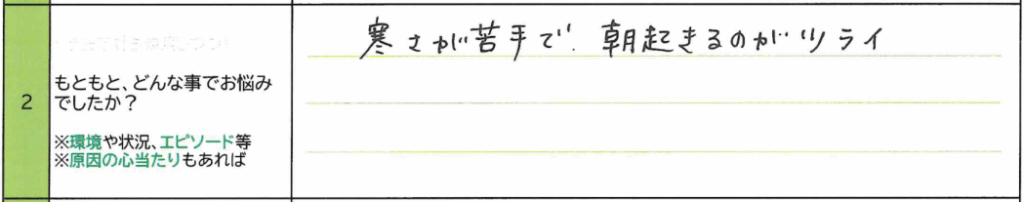 2
もともと、どんな事でお悩み
でしたか?
※環境や状況、エピソード等
※原因の心当たりもあれば
寒さが苦手で、朝起きるのがツライ